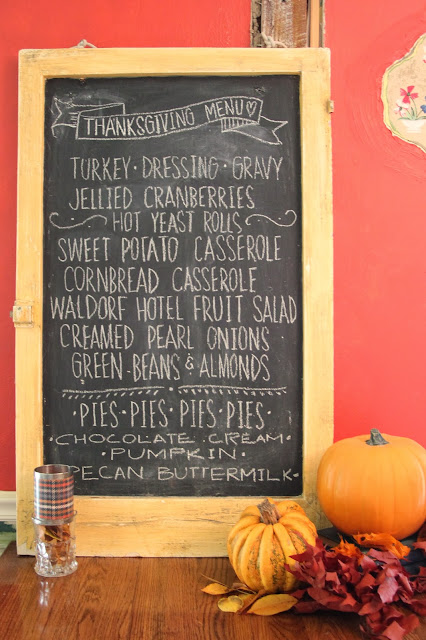 THANKSGIVING MENU
TURKEY · DRESSING · GRAVY
JELLIED CRANBERRIES
HOT YEAST ROLLS
SWEET POTATO CASSEROLE
CORNBREAD CASSEROLE
WALDORF HOTEL FRUIT SALAD
CREAMED PEARL ONIONS
GREEN BEANS & ALMONDS
·PIES·PIES·PIES·PIES·
·CHOCOLATE CREAM·
·PUMPKIN·
PECAN BUTTERMILK·